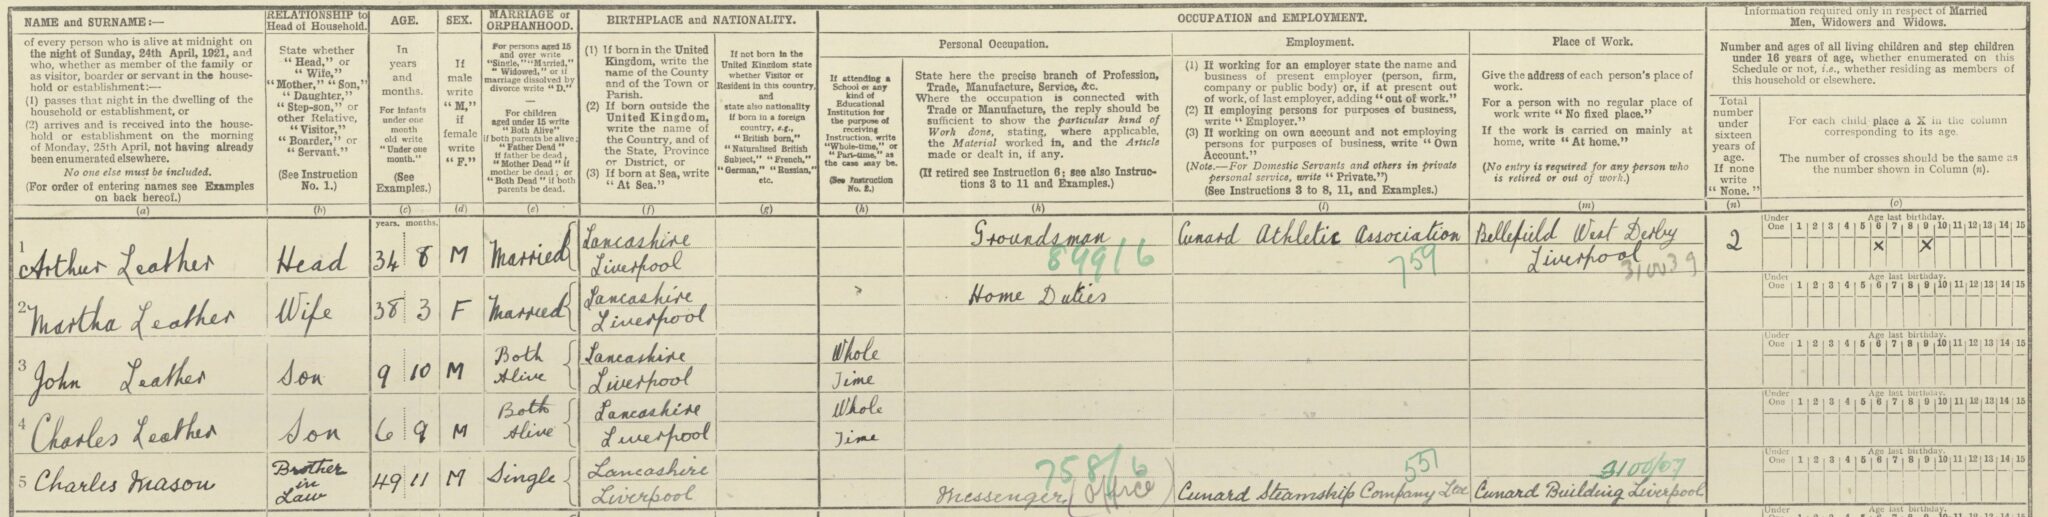 NAME and SURNAME:—
of every person who is alive at midnight on
the night of Sunday, 24th April, 1921, and
who, whether as member of the family or
as visitor, boarder or servant in the house-
hold or establishment:—
(1) passes that night in the dwelling of the
household or establishment, or
(2) arrives and is received into the house-
hold or establishment on the morning
of Monday, 25th April, not having already
been enumerated elsewhere.
No one else must be included.
(For order of entering names see Examples
on back hereof.)
(a)
RELATIONSHIP to
Head of Household.
State whether
"Head," or
"Wife,"
"Mother," "Son,"
"Daughter,"
"Step-son," or
other Relative,
"Visitor,"
"Boarder," or
"Servant."
(See Instruction
No. 1.)
(b)
AGE.
In
years
and
months.
For infants
under one
month
old write
"Under one
month."
(See
Examples.)
(c)
years. months.
SEX.
If
male
write
"M,"
if
female
write
"F."
(d)
MARRIAGE or
ORPHANHOOD.
For persons aged 15
and over write
"Single," "Married,"
"Widowed," or if
marriage dissolved by
divorce write "D."
For children
aged under 15 write
"Both Alive"
if both parents be alive;
"Father Dead"
if father be dead;
"Mother Dead" if
mother be dead; or
"Both Dead" if both
parents be dead.
(e)
BIRTHPLACE and NATIONALITY.
(1) If born in the United
Kingdom, write the
name of the County
and of the Town or
Parish.
(2) If born outside the
United Kingdom,
write the name of
the Country, and of
the State, Province
or District, or
(3) If born at Sea, write
"At Sea."
(f)
If not born in the
United Kingdom state
whether Visitor or
Resident in this country,
and
state also nationality
if born in a foreign
country, e.g.,
"British born,"
"Naturalised British
Subject," "French,"
"German," "Russian,"
etc.
(g)
OCCUPATION and EMPLOYMENT.
If attending a
School or any
kind of
Educational
Institution for
the purpose of
receiving
Instruction, write
"Whole-time," or
"Part-time," as
the case may be.
(See Instruction
No. 2.)
(h)
Personal Occupation.
State here the precise branch of Profession,
Trade, Manufacture, Service, &c.
Where the occupation is connected with
Trade or Manufacture, the reply should be
sufficient to show the particular kind of
Work done, stating, where applicable,
the Material worked in, and the Article
made or dealt in, if any.
(If retired see Instruction 6; see also Instruc-
tions 3 to 11 and Examples.)
(k)
Employment.
(1) If working for an employer state the name and
business of present employer (person, firm,
company or public body) or, if at present out
of work, of last employer, adding "out of work."
(2) If employing persons for purposes of business,
write "Employer."
(3) If working on own account and not employing
persons for purposes of business, write "Own
Account."
(Note.—For Domestic Servants and others in private
personal service, write "Private.")
(See Instructions 3 to 8, 11, and Examples.)
(l)
Place of Work.
Give the address of each person's place of
work.
For a person with no regular place of
work write "No fixed place."
If the work is carried on mainly at
home, write "At home."
(No entry is required for any person who
is retired or out of work.)
(m)
Information required only in respect of Married
Men, Widowers and Widows.
Number and ages of all living children and step children
under 16 years of age, whether enumerated on this
Schedule or not, i.e., whether residing as members of
this household or elsewhere.
Total
number
under
sixteen
years of
age.
If none
write
"None."
(n)
For each child place a X in the column
corresponding to its age.
The number of crosses should be the same as
the number shown in Column (n).
(o)
Under One Age last birthday. 1 2 3 4 5 6 7 8 9 10 11 12 13 14 15
1 Arthur Leather Head 34 8 M Married Lancashire Liverpool Groundsman 899/6 Cunard Athletic Association 759 Bellefield West Derby Liverpool 2 x x
Under One Age last birthday. 1 2 3 4 5 6 7 8 9 10 11 12 13 14 15
2 Martha Leather Wife 38 3 F Married Lancashire Liverpool Home Duties
Under One Age last birthday. 1 2 3 4 5 6 7 8 9 10 11 12 13 14 15
3 John Leather Son 9 10 M Both Alive Lancashire Liverpool Whole Time
Under One Age last birthday. 1 2 3 4 5 6 7 8 9 10 11 12 13 14 15
4 Charles Leather Son 6 9 M Both Alive Lancashire Liverpool Whole Time
Under One Age last birthday. 1 2 3 4 5 6 7 8 9 10 11 12 13 14 15
5 Charles Mason Brother in Law 49 11 M Single Lancashire Liverpool 758/6 Messenger (office) 551 Cunard Steamship Company Ltd Cunard Building Liverpool
Under One Age last birthday.